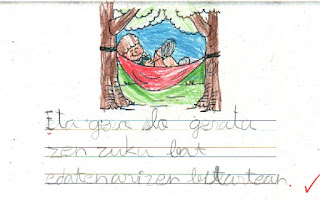 Eta gero lo geratu
zen zuku bat
edaten ari zen bitartean.